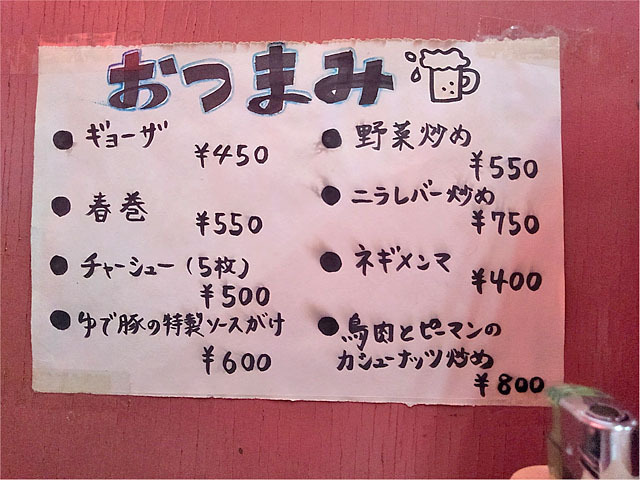 おつまみ
● ギョーザ
¥450
● 春巻
¥550
● チャーシュー(5枚)
¥500
● ゆで豚の特製ソースがけ
¥600
● 野菜炒め
¥550
● ニラレバー炒め
¥750
● ネギメンマ
¥400
● 鳥肉とピーマンの
カシューナッツ炒め
¥800